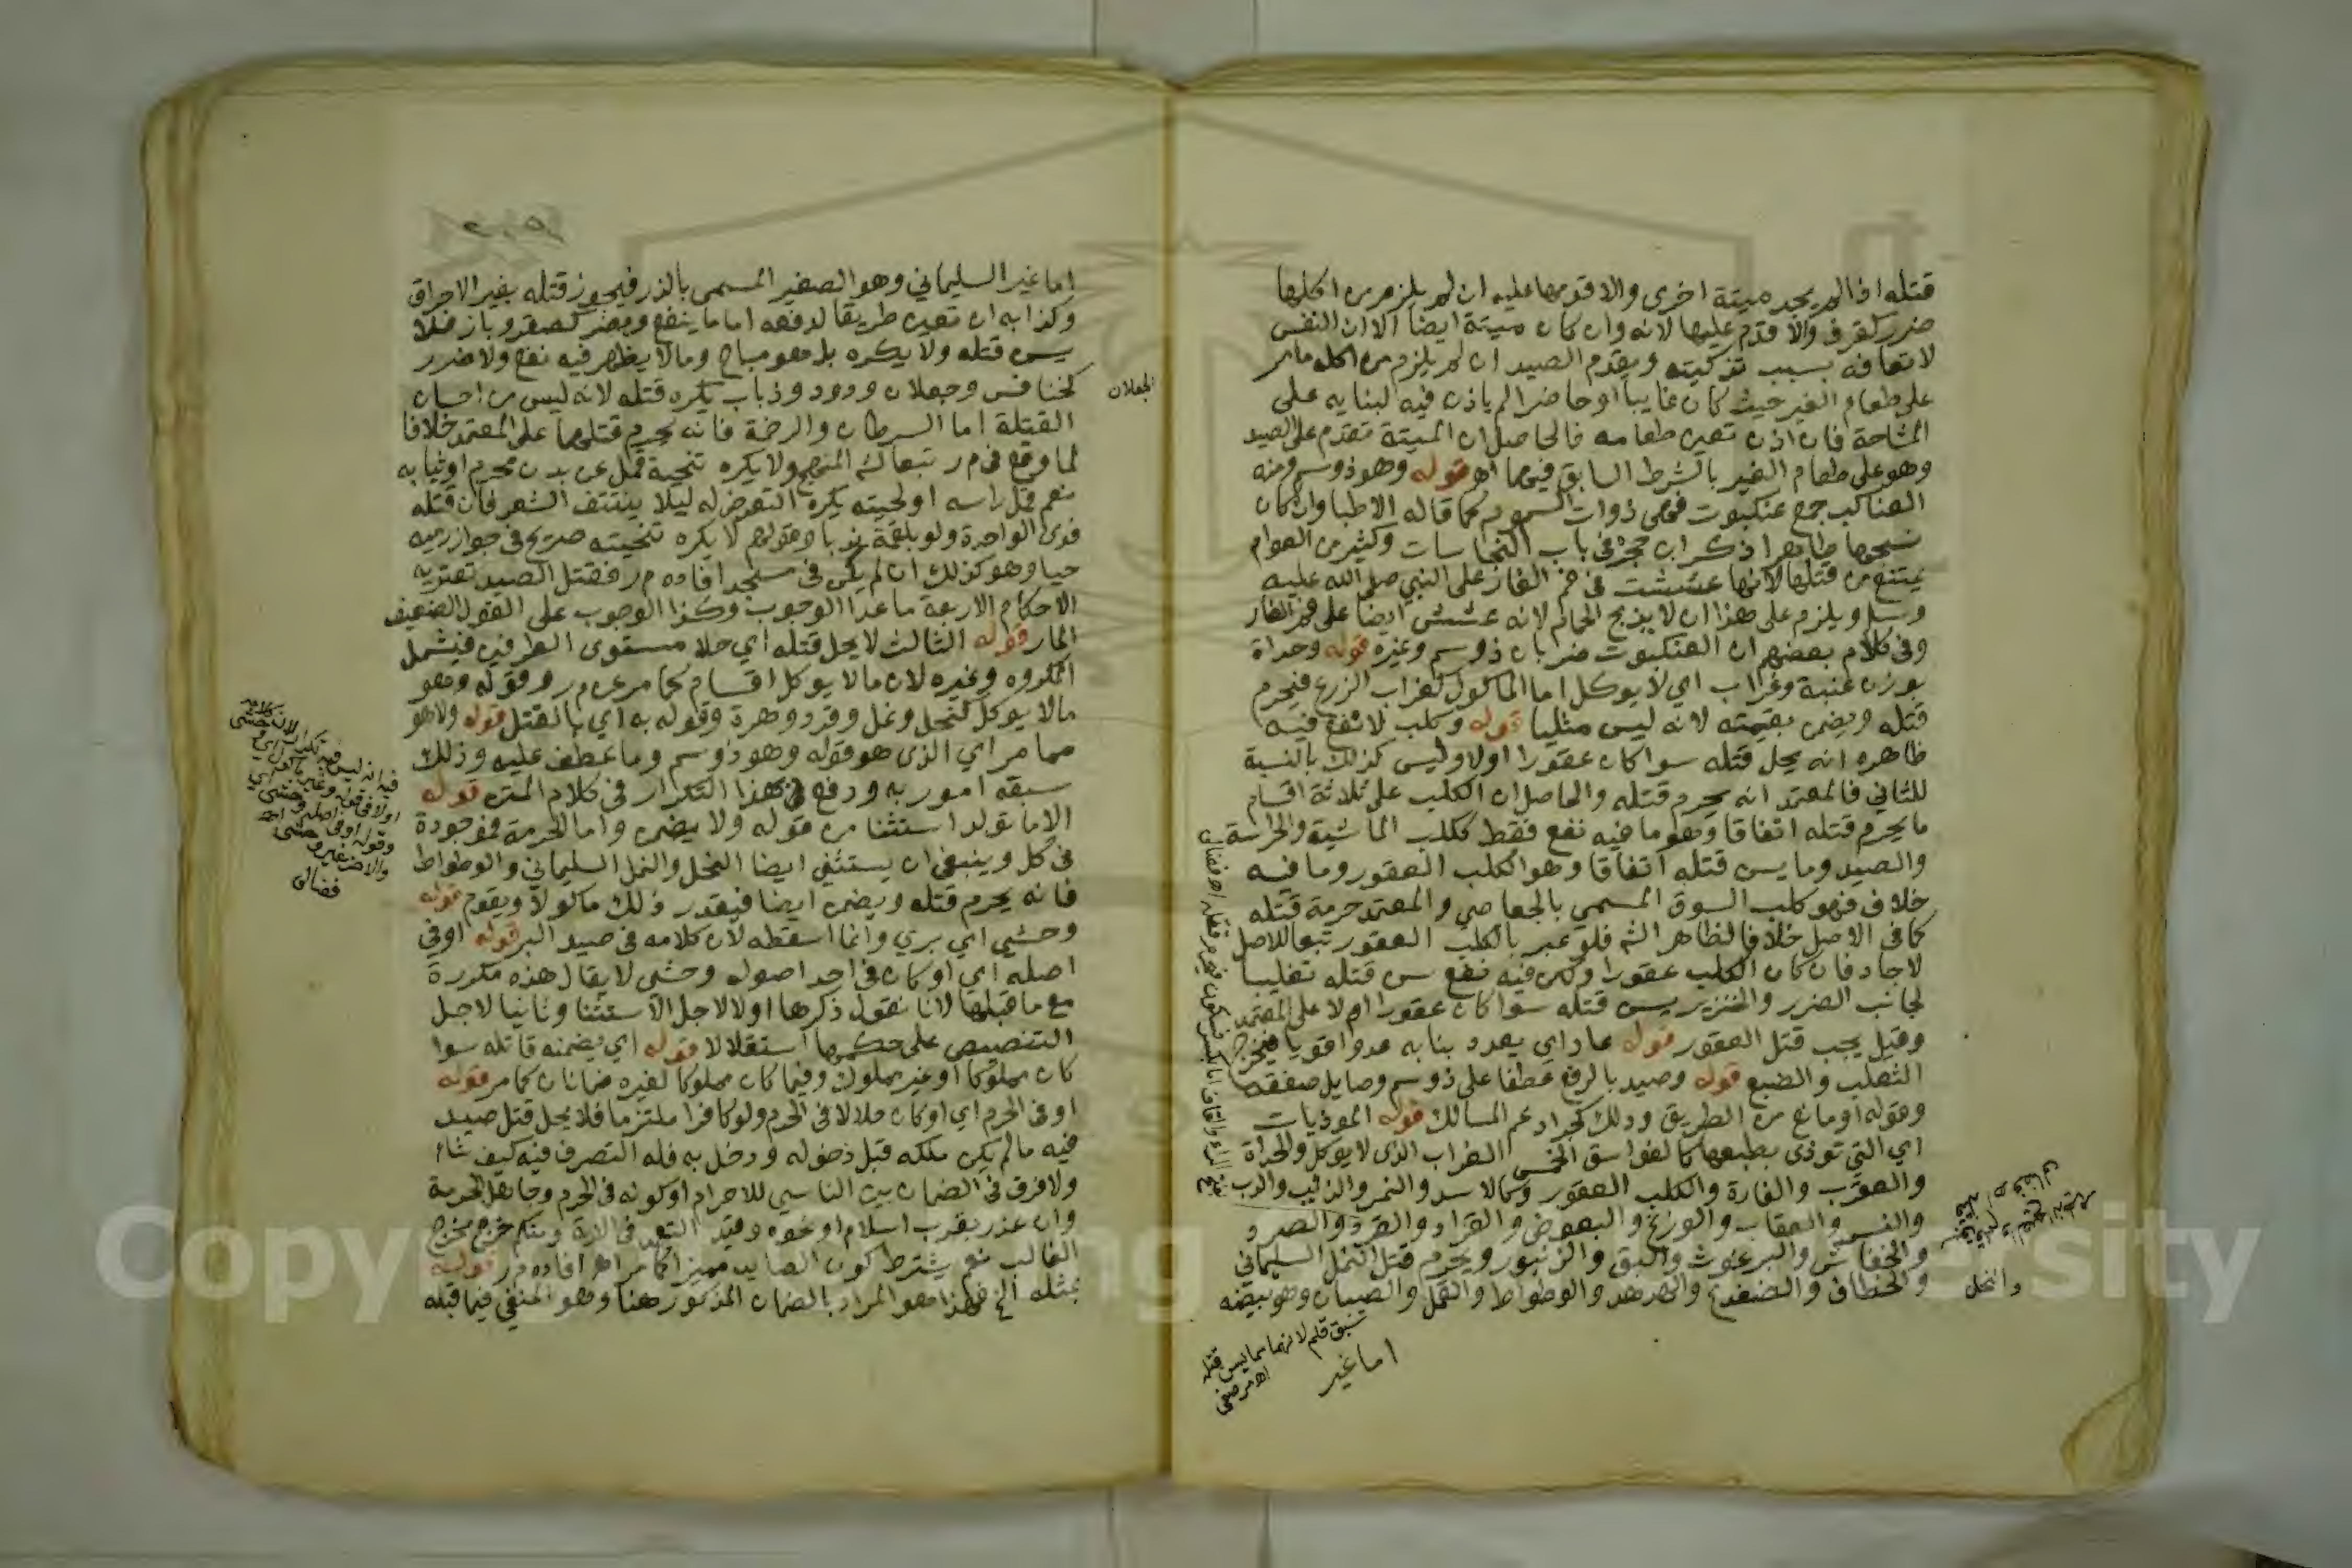 قتله اذا لم يجد ميتة اخرى والا قدمها عليه ان لم يلزم من اكلها
ضرر كقرف والا قدم عليها لانه وان كان ميتة ايضا الا ان النفس
لا تعافه بسبب تذكيته ويقدم الصيد ان لم يلزم من اكله ما مر
على طعام الغير حيث كان غايبا او حاضرا لم ياذن فيه لبنايه على
المشاحة فان اذن تعين طعامه فالحاصل ان الميتة تقدم على الصيد
وهو على طعام الغير بالشرط السابق فيهما اه قوله وهو ذو سم ومنه
العناكب جمع عنكبوت فهي ذوات السموم كما قاله الاطبا وان كان
نسجها طاهرا ذكر ابن حجر في باب النجاسات وكثير من العوام
يمتنع من قتلها لانها عششت في فم الغار على النبي صلى الله عليه
وسلم ويلزم على هذا ان لا يذبح الحمام لانه عشش ايضا على فم الغار
وفي كلام بعضهم ان العنكبوت ضربان ذو سم وغيره قوله وحداة
بوزن عنبة وغراب اي لا يوكل اما الماكول كغراب الزرع فيحرم
قتله ويضمن بقيمته لانه ليس مثليا قوله وكلب لا نفع فيه
ظاهره انه يحل قتله سوا كان عقورا اولا وليس كذلك بالنسبة
للثاني فالمعتمد انه يحرم قتله والحاصل ان الكلب على ثلاثة اقسام
ما يحرم قتله اتفاقا وهو ما فيه نفع فقط ككلب الماشية والحراسة
والصيد وما يسن قتله اتفاقا وهو الكلب العقور وما فيه
خلاف فهو كلب السوق المسمى بالجعاصي والمعتمد حرمة قتله
كما في الاصل خلافا لظاهر الش فلو عبر بالكلب العقور تبعا للاصل
لاجاد فان كان الكلب عقورا ولكن فيه نفع سن قتله تغليبا
لجانب الضرر والخنزير يسن قتله سوا كان عقورا ام لا على المعتمد
وقيل يجب قتل العقور قوله عاد اي يعدو بنابه عدوا قويا فيخرج
الثعلب والضبع قوله وصيد بالرفع عطفا على ذو سم وصايل صفته
وقوله او مانع من الطريق وذلك كجراد عم المسالك قوله الموذيات
اي التي توذي بطبعها كالفواسق الخمس الغراب الذي لا يوكل والحداة
والعقرب والفارة والكلب العقور وكالاسد والنمر والذئب والدب
والنسر والعقاب والوزغ والبعوض والقراد والقرد والصرد
والخفاش والبرغوث والبق والزنبور ويحرم قتل النمل السليماني
والخطاف والضفدع والهدهد والوطواط والقمل والصيبان وهو بيضه
اما غير
سبق قلم لانهما مما يسن قتله
والنحل
اما غير السليماني وهو الصغير المسمى بالذر فيجوز قتله بغير الاحراق
وكذا به ان تعين طريقا لدفعه اما ما ينفع ويضر كصقر وباز فلا
يسن قتله ولا يكره بل هو مباح وما لا يظهر فيه نفع ولا ضرر
كخنافس وجعلان ودود وذباب يكره قتله لانه ليس من احسان
القتلة اما السرطان والرخمة فانه يحرم قتلهما على المعتمد خلافا
لما وقع في م ر تبعا لش المنهج ولا يكره تنحية قمل عن بدن محرم او ثيابه
نعم قمل راسه او لحيته يكره التعرض له ليلا ينتتف الشعر فان قتله
فدى الواحدة ولو بلقمة ندبا وقولهم لا يكره تنحيته صريح في جواز رميه
حيا وهو كذلك ان لم يكن في مسجد افاده م ر فقتل الصيد تعتريه
الاحكام الاربعة ما عدا الوجوب وكذا الوجوب على القول الضعيف
المار قوله الثالث لا يحل قتله اي حلا مستوى الطرفين فيشمل
المكروه وغيره لان ما لا يوكل اقسام كما مر عن م ر وقوله وهو
ما لا يوكل كنحل ونمل وقرد وهرة وقوله به اي بالقتل قوله ولا هو
مما مر اي الذي هو قوله وهو ذو سم وما عطف عليه وذلك
سبقه امور به ودفع بهذا التكرار في كلام المتن قوله
الا ما تولد استثنا من قوله ولا يضمن واما الحرمة فموجودة
في كل وينبغي ان يستثني ايضا النحل والنمل السليماني والوطواط
فانه يحرم قتله ويضمن ايضا فيقدر ذلك ماكولا ويقوم قوله
وحشي اي بري وانما اسقطه لان كلامه في صيد البر قوله اوفي
اصله اي او كان في احد اصوله وحشي لا يقال هذه مكررة
مع ما قبلها لانا نقول ذكرها اولا لاجل الاستثنا وثانيا لاجل
التنصيص على حكمها استقلالا قوله اي يضمنه قاتله سوا
كان مملوكا او غير مملوك وفيما كان مملوكا لغيره ضمانان كما مر قوله
او في الحرم اي او كان حلالا في الحرم ولو كافرا ملتزما فلا يحل قتل صيد
فيه ما لم يكن ملكه قبل دخوله ودخل به فله التصرف فيه كيف شاء
ولا فرق في الضمان بين الناسي للاحرام او كونه في الحرم وجاهل الحرمة
وان عذر بقرب اسلام او نحوه وقيد التعمد في الاية ومنكم خرج مخرج
الغالب نعم يشترط كون الصايد مميزا كما مر اه افاده م ر قوله
بمثله الخ هذا هو المراد بالضمان المذكور هنا وهو المنفي فيما قبله
الجعلان
فضالي